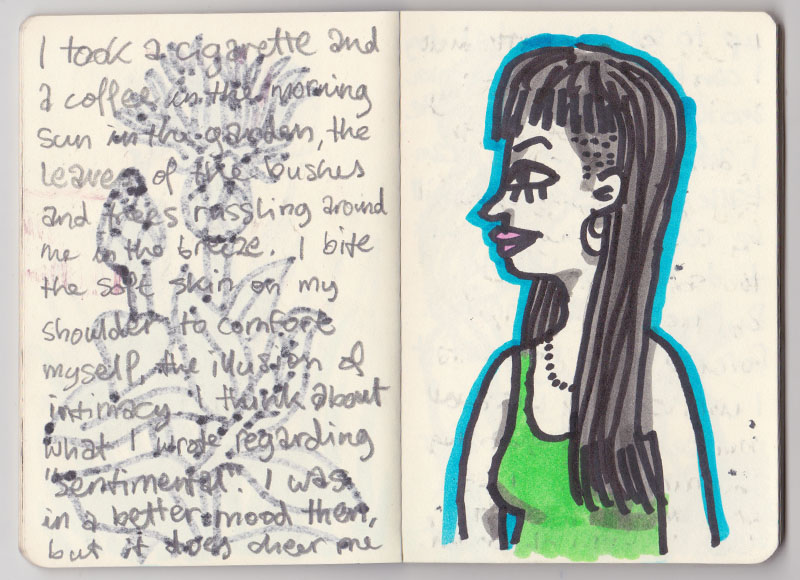 I took a cigarette and
a coffee in the morning
sun in the garden, the
leaves of the bushes
and trees russling around
me in the breeze. I bite
the soft skin on my
shoulder to comfort
myself, the illusion of
intimacy. I think about
what I wrote regarding
"sentimental". I was
in a better mood then,
but it does cheer me